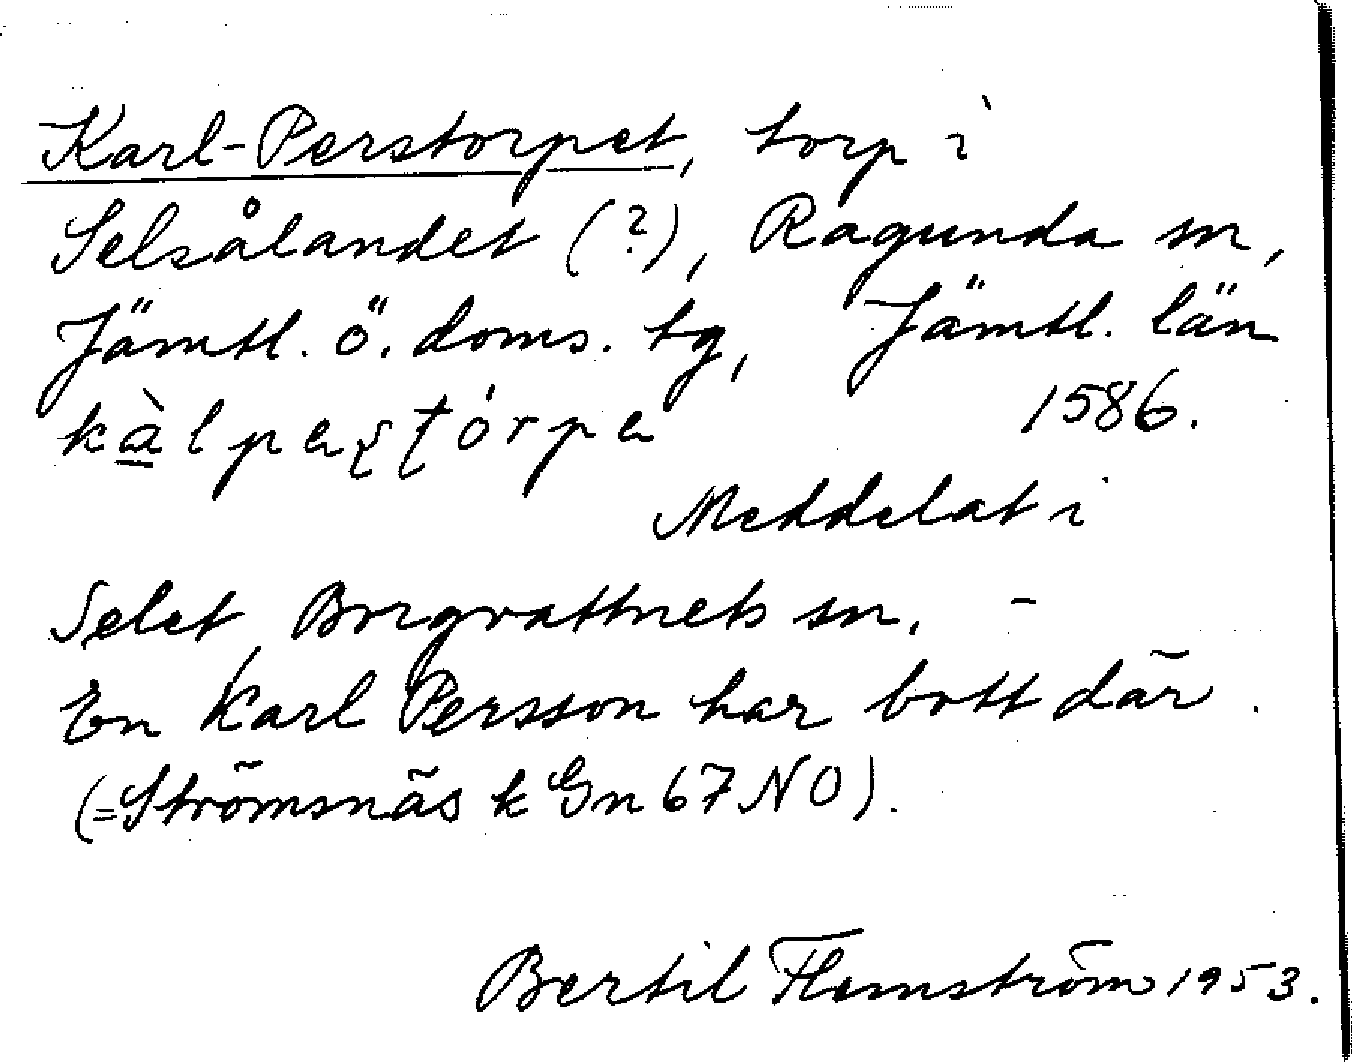 Karl-Perstorpet, torp i
Selsålandet (?), Ragunda sn,
Jämtl. ö. doms. tg, Jämtl. län
kàlpaʂʈórpa 1586.
Meddelat i
Selet, Borgvattnets sn. -
En Karl Persson har bott där.
(=Strömsnäs k Gn 67 NO).
Bertil Flemström 1953.